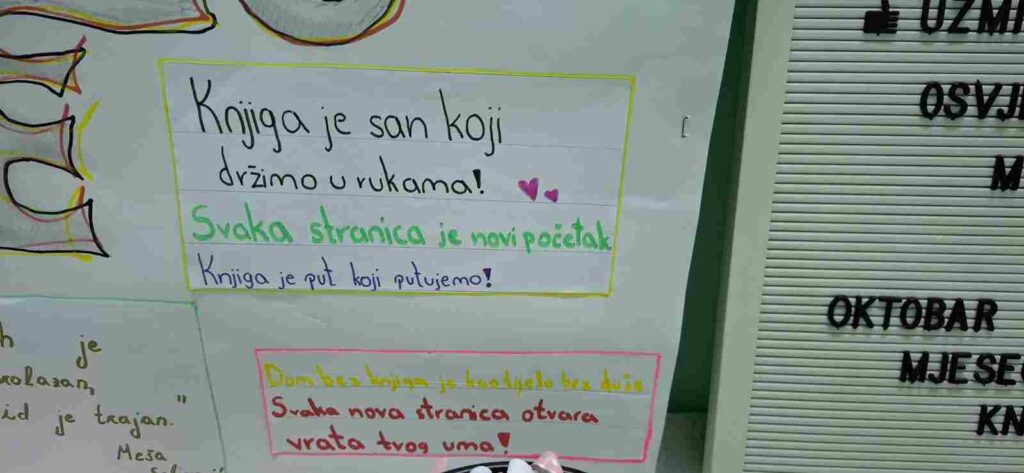 Knjiga je san koji
držimo u rukama!
Svaka stranica je novi početak
Knjiga je put koji putujemo!
Dom bez knjiga je kao tijelo bez duše
Svaka nova stranica otvara
vrata tvog uma!
je
trajan."
id je
Meša
UZMI
OSVJE
M
OKTOBAR
MJESEC
KN